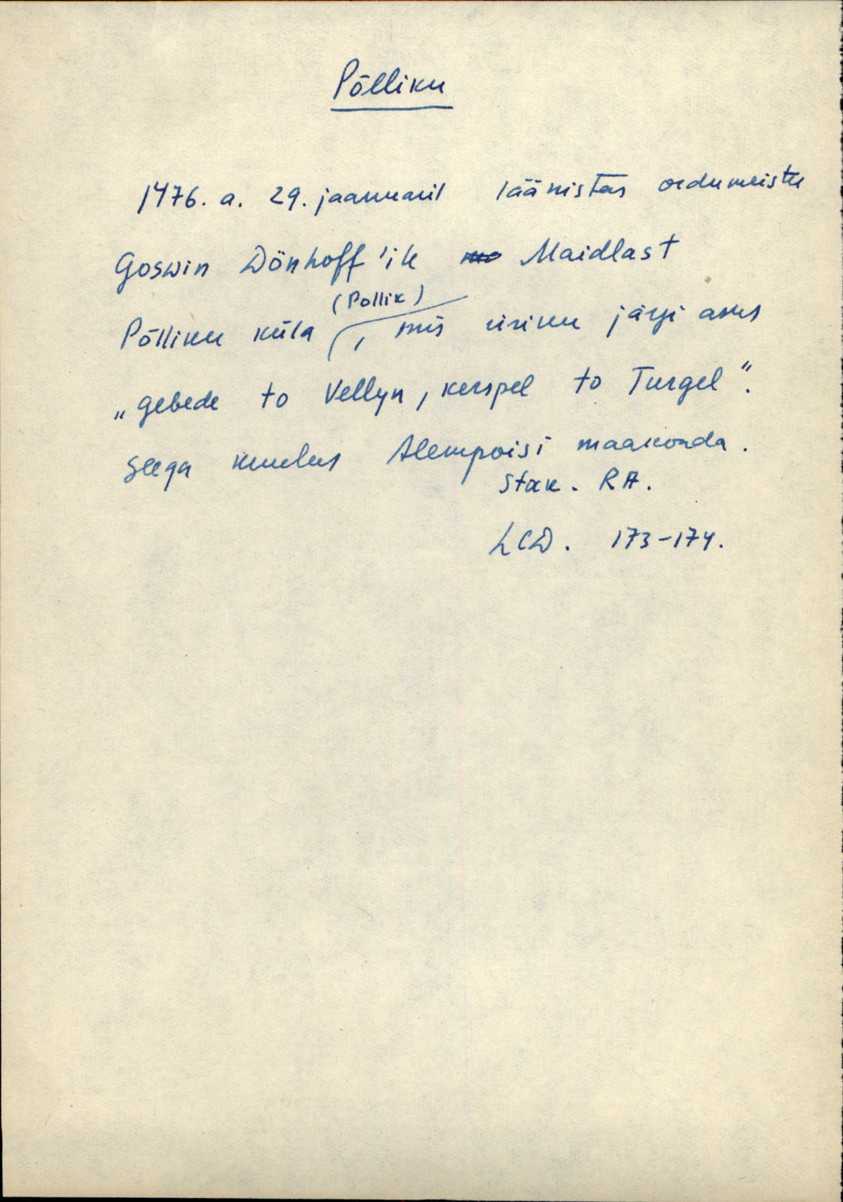 Põlliku
1476. a. 29. jaanuaril läänistas ordumeister
Goswin Dönhoff'ile Maidlast
(Pollik)
Põlliku küla, mis ürikuu järgi asus
„gebede to Vellyn, kerspel to Turgel".
Seega kuulus Alempoisi maakonda.
Stok. RA.
LCD. 173-174.